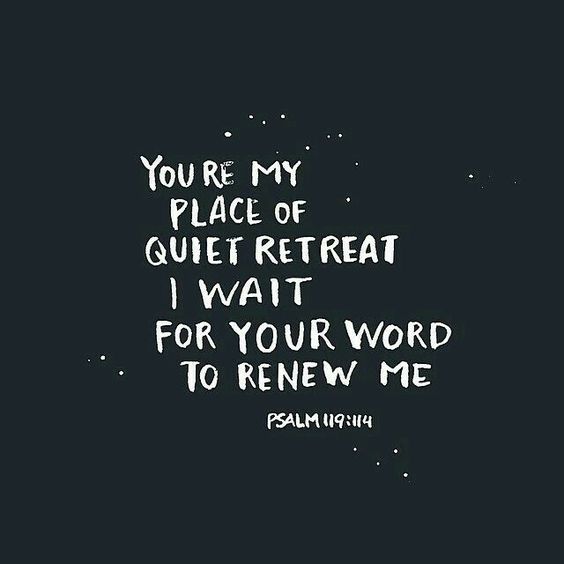 YOURE MY
PLACE OF
QUIET RETREAT
I WAIT
FOR YOUR WORD
TO RENEW ME
PSALM 119:114